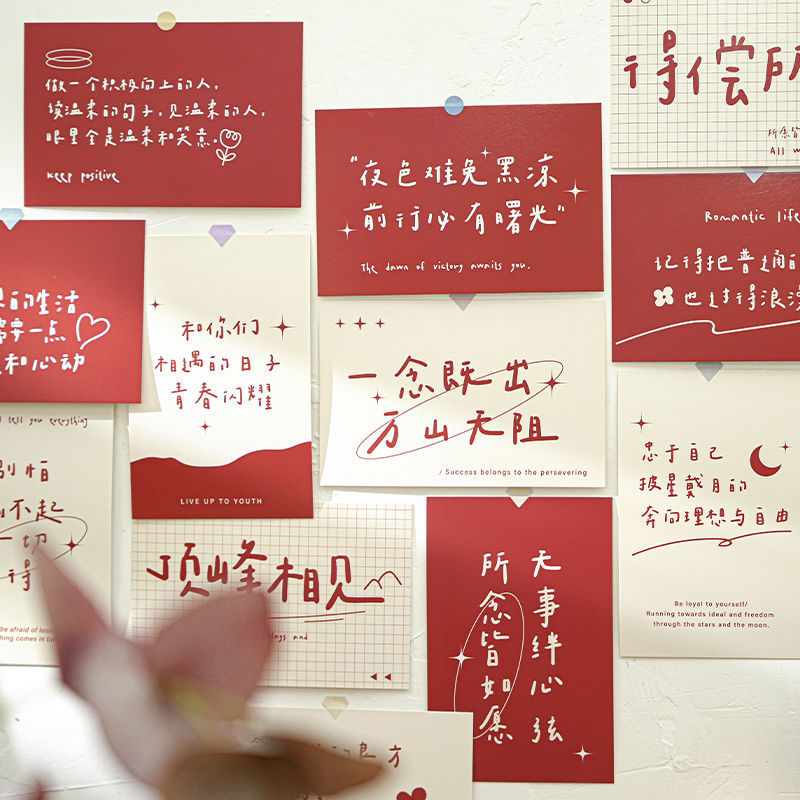 做一个积极向上的人，
读温柔的句子，见温柔的人，
眼里全是温柔和笑意。
keep positive
"夜色难免黑凉
前行必有曙光"
The dawn of victory awaits you.
得偿所
所念皆
All w
Romantic life
记得把普通的
也过得浪漫
的生活
需要一点
和心动
和你们
相遇的日子
青春闪耀
LIVE UP TO YOUTH
一念既出
万山无阻
/ Success belongs to the persevering
忠于自己
披星戴月的
奔向理想与自由
Be loyal to yourself/
Running towards ideal and freedom
through the stars and the moon.
tell you everything
别怕
不起
一切
得
be afraid of losing
thing comes in
顶峰相见
and
无事绊心弦
所念皆如愿
方